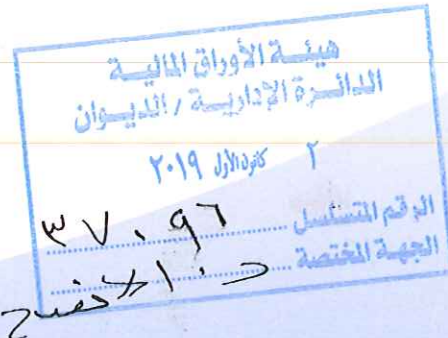 هيئة الأوراق المالية
الدائرة الإدارية / الديوان
٢ كانون الأول ٢٠١٩
الرقم المتسلسل ٣٧٠٩٦
الجهة المختصة د. الافصاح